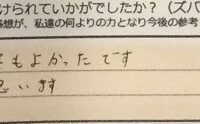 けられていかがでしたか？（ズバ
感想が、私達の何よりの力となり今後の参考
もよかったです
思います